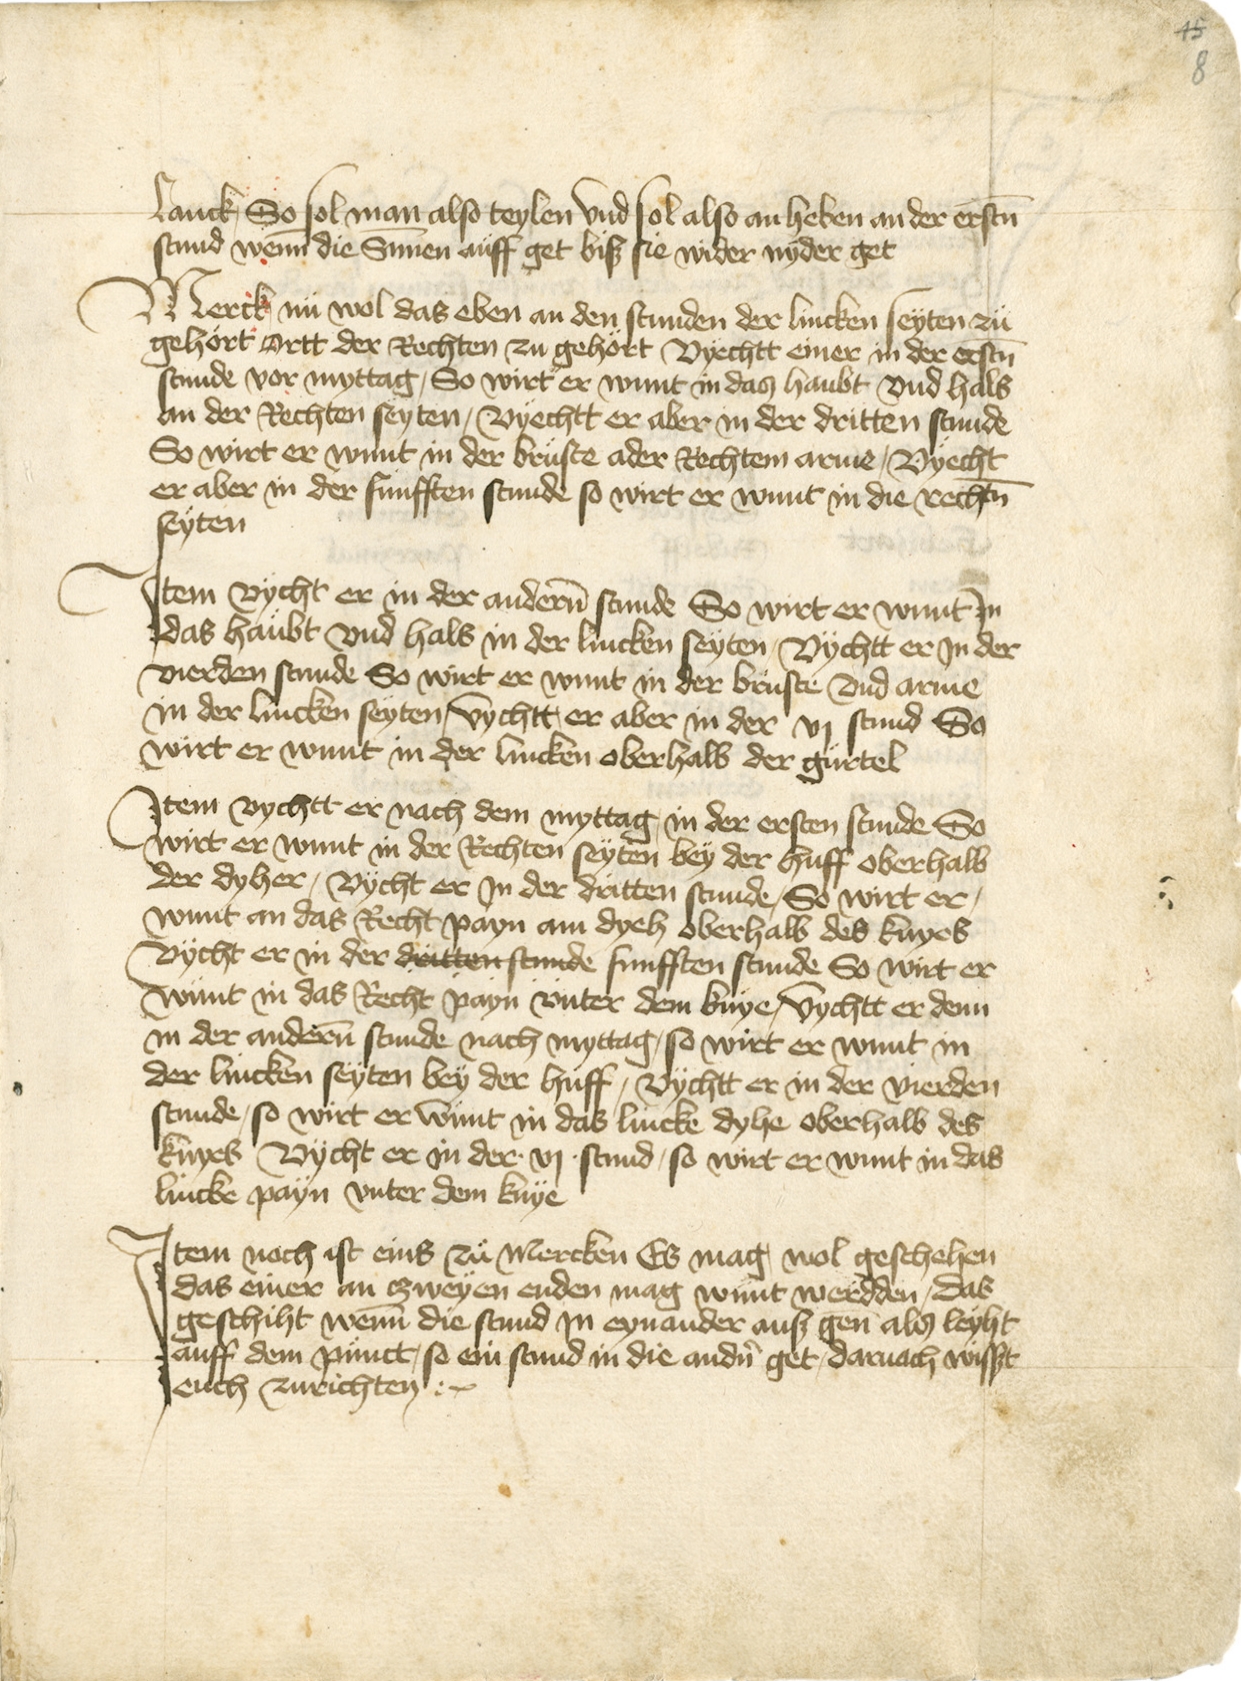 45
8
lanck / So sol man also teylen vnd sol also an heben an der erstn̄
stund wenn̄ die Sunnen auff get biß sie wider nyder get
Merck nü wol das eben an den stunden der lincken seyten zü
gehört Ortt der Rechten zu gehört Vyechtt einer in der erstn̄
stunde vor myttag / So wirt er wunt in das haubt Vnd hals
an der Rechten seyten / Vyechtt er aber in der dritten stunde
So wirt er wunt in der brüste ader Rechtem arme / Vyecht
er aber in der funfften stunde so wirt er wunt in die rechtn̄
seyten
Item vycht er in der andern̄ stunde So wirt er wunt In
das haubt vnd hals in der lincken seyten / Vychtt er In der
vierden stunde So wirt er wunt in der brüste Vnd arme
in der lincken seyten / Vychtt er aber in der vj stund So
wirt er wunt in der lincken oberhalb der gürtel
Item vychtt er nach dem myttag in der ersten stunde So
wirt er wunt in der Rechten seyten bey der huff oberhalb
der dyher / Vycht er In der dritten stunde / So wirt er /
wunt an das Recht payn am dyeh oberhalb des knyes
Vycht er in der dritten stunde funfften stunde So wirt er
wunt in das Recht payn vnter dem knye / Vychtt er denn
in der andern̄ stunde nach myttag / so wirt er wunt in
der lincken seyten bey der huff / Vychtt er in der vierden
stunde / so wirt er wunt in das lincke dyhe oberhalb des
knyes Vycht er in der · vj · stund / so wirt er wunt in das
lincke payn vnter dem knye
Item noch ist eins zü Mercken Es mag wol geschehen
das einer an zweyen enden mag wunt werdden / Das
geschiht wenn̄ die stund in eynander auß gen als leyht
auff dem punct / so ein stund in die andn̄ get / darnach wisst
euch zurichten :~